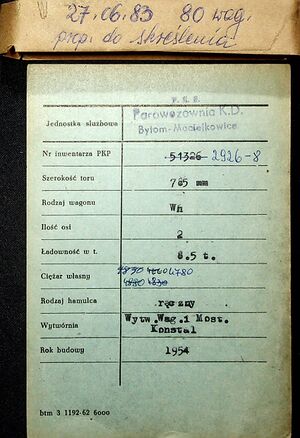 27.06.83 80 wag.
prop. do skreślenia
Jednostka służbowa
Parowozownia K.D.
Bytom-Maciejkowice
Nr inwentarza PKP 51326 2926-8
Szerokość toru 765 mm
Rodzaj wagonu Wh
Ilość osi 2
Ładowność w t. 8.5 t.
Ciężar własny 4780
4830
Rodzaj hamulca ręczny
Wytwórnia Wytw.Wag.i Most.
Konstal
Rok budowy 1954
btm 3 1192-62 6000